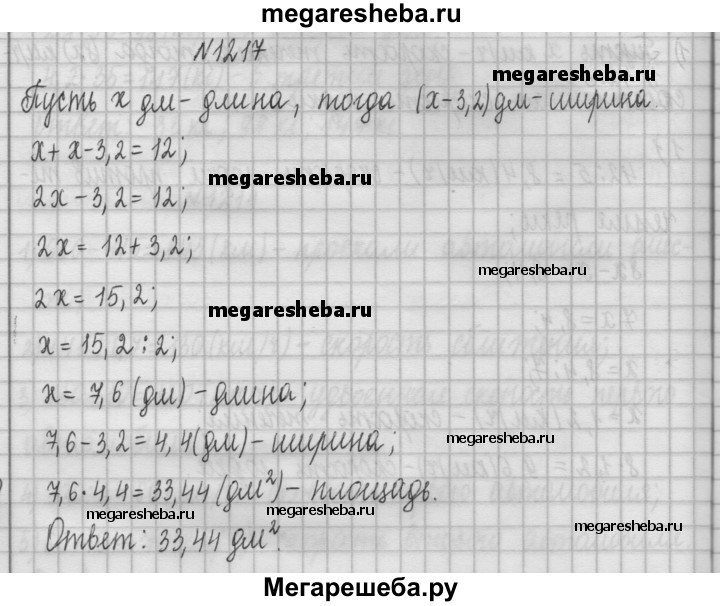 megaresheba.ru
№1217
megaresheba.ru
Пусть x дм - длина, тогда (x-3,2) дм - ширина
x + x - 3,2 = 12;
megaresheba.ru
2x - 3,2 = 12;
2x = 12 + 3,2;
megaresheba.ru
2x = 15,2;
megaresheba.ru
x = 15,2 : 2;
x = 7,6 (дм) - длина;
7,6 - 3,2 = 4,4 (дм) - ширина;
megaresheba.ru
7,6 · 4,4 = 33,44 (дм²) - площадь.
megaresheba.ru megaresheba.ru
Ответ: 33,44 дм².
megaresheba.ru
Мегарешеба.ру